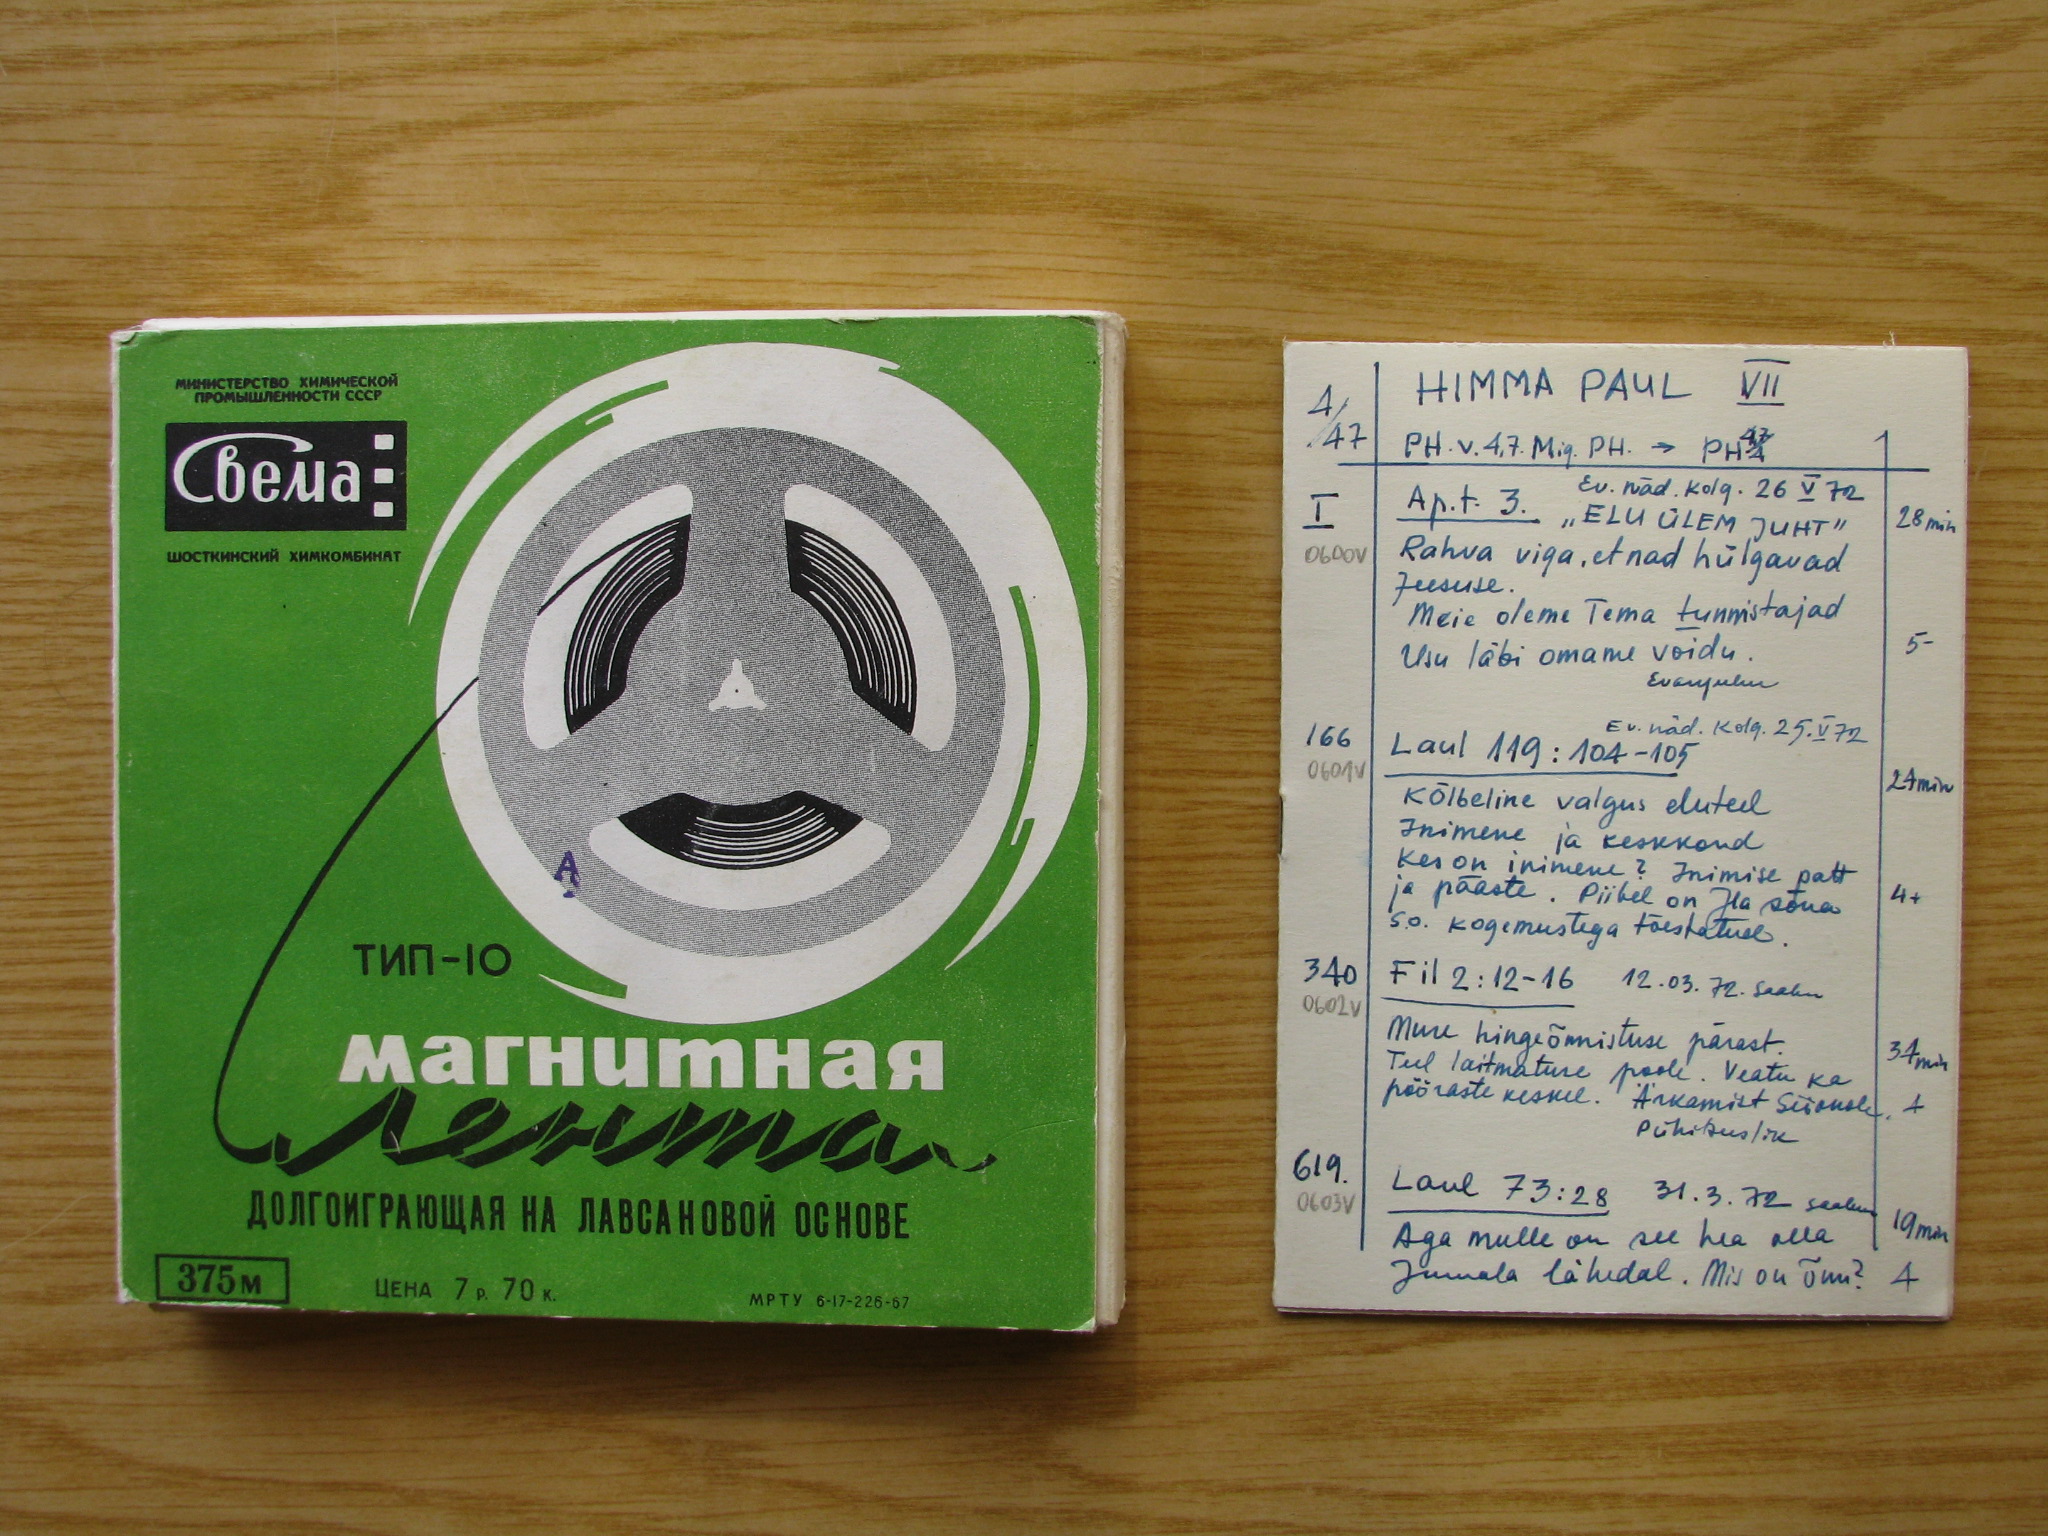 МИНИСТЕРСТВО ХИМИЧЕСКОЙ
ПРОМЫШЛЕННОСТИ СССР
Свема
ШОСТКИНСКИЙ ХИМКОМБИНАТ
ТИП-10
магнитная
лента
ДОЛГОИГРАЮЩАЯ НА ЛАВСАНОВОЙ ОСНОВЕ
375м
ЦЕНА 7 р. 70 к.
МРТУ 6-17-226-67
4/47
HIMMA PAUL VII
PH. v. 4,7. Mig. PH. → PH
I
Ev. näd. Kolg. 26 V 72
Ap.t. 3. „ELU ÜLEM JUHT"
28 min
0600V
Rahva viga, et nad hülgavad
Jeesuse.
Meie oleme Tema tunnistajad
5-
Usu läbi omame võidu.
166
Ev. näd. Kolg. 25. V 72
Laul 119 : 104-105
0601V
24 min
Kõlbeline valgus eluteel
Inimene ja keskkond
Kes on inimene? Inimise patt
ja pääste. Piibel on Jla sõna
4+
s.o. kogemustega tõestatud.
340
Fil 2 : 12-16 12.03.72. Saaku
0602V
Mure hingeõnnistuse pärast.
34 min
Teel laitmatuse poole. Veatu ka
pööraste keskel. Ärkamist Siionole.
4
Pühituslik
619.
Laul 73:28 31.3.72
0603V
19 min
Aga mulle on see hea olla
Jumala lähedal. Mis on õnn?
4